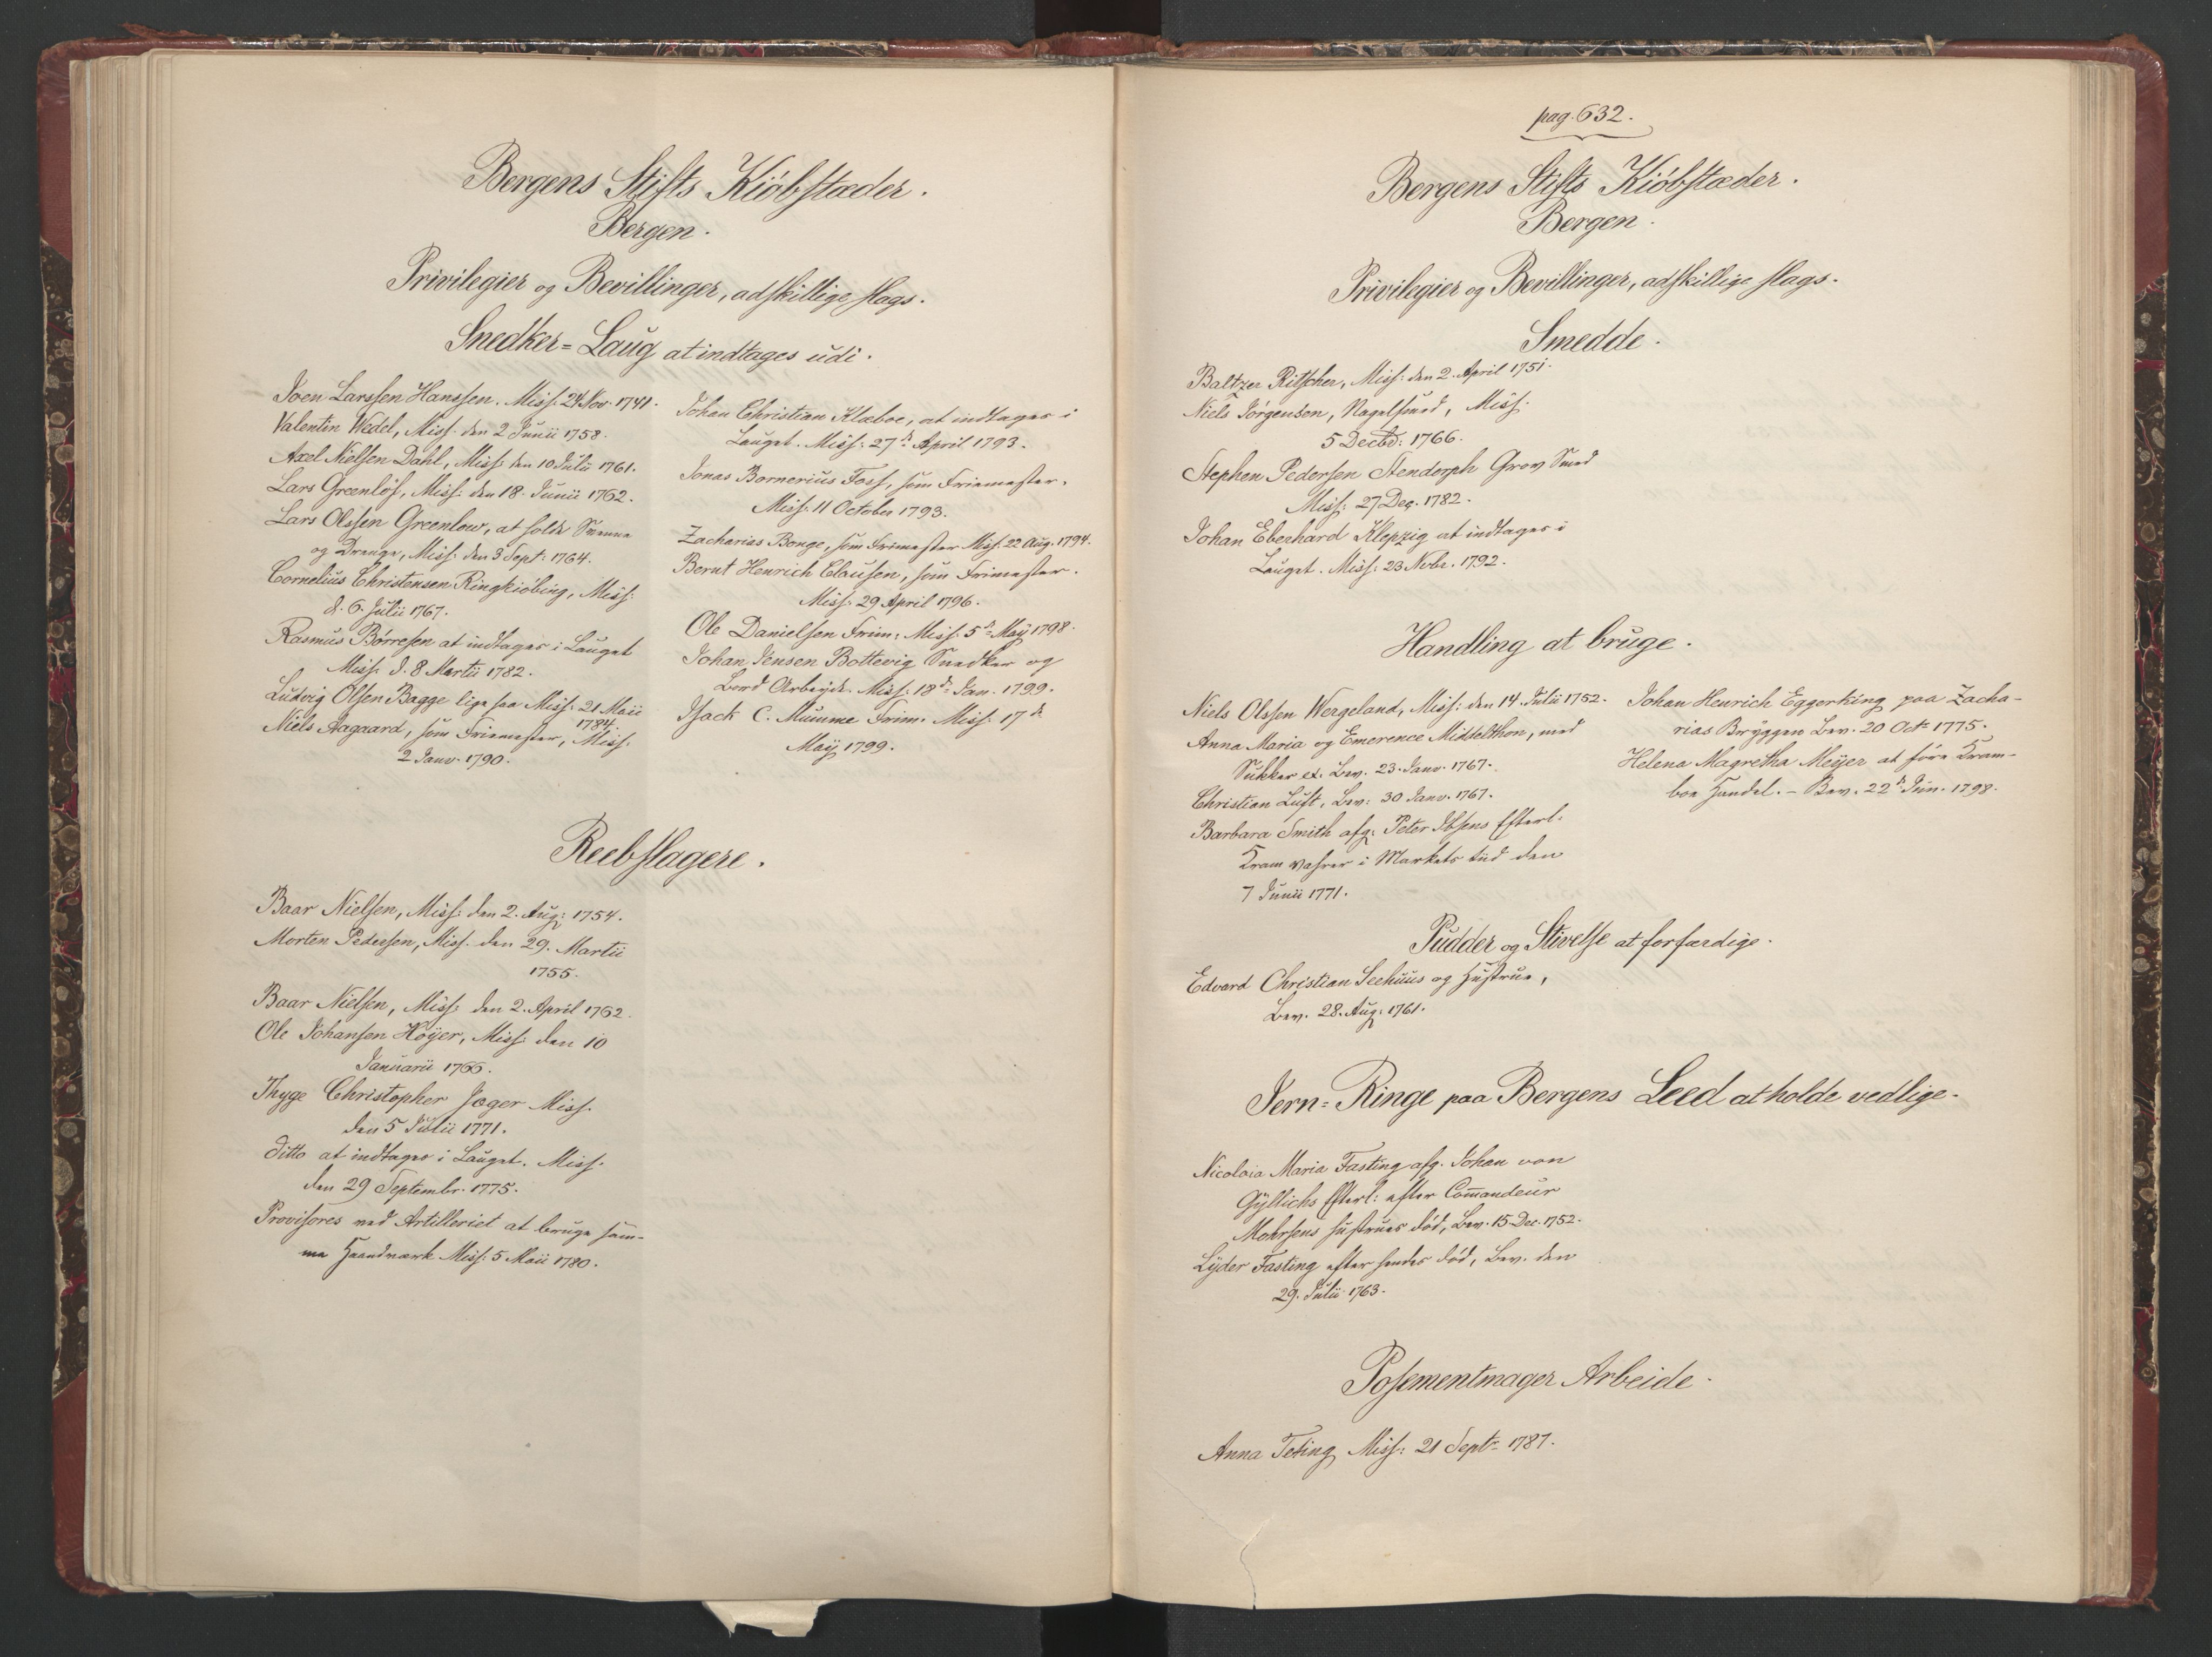 Bergens Stifts Kiöbstæder.
Bergen.
Privilegier og Bevillinger, adskillige slags.
Snedker=Laug at indtages udi.
Joen Larssen Hanssen. Miss. 24 Nov. 1741.
Valentin Wedel, Miss. den 2 Junii 1758.
Axel Nielsen Dahl, Miss: den 10 Julii 1761.
Lars Greenlös, Miss: den 18. Junii 1762.
Lars Olssen Greenlow, at holde Svenne
og Drenge, Miss: den 3 Sept: 1764.
Cornelius Christensen Ringkiöbing, Miss:
d. 6. Julii 1767.
Rasmus Börresen at indtages i Lauget
Miss. d. 8 Martii 1782.
Ludvig Olsen Bagge lige saa Miss. 21 Maii
1784.
Niels Aagaard, som Friemester, Miss.
2 Janv. 1790.
Johan Christian Klæboe, at indtages i
Lauget. Miss: 27d April 1793.
Jonas Bornerius Foss, som Friemester.
Miss. 11 October 1793.
Zacharias Bonge, som Frimester Miss. 22 Aug. 1794.
Bernt Henrich Clausen, som Frimester.
Miss: 29 April 1796.
Ole Danielsen Frim: Miss. 5d May 1798.
Johan Jensen Bottevig Snedker og
Bord Arbeyde. Miss: 18d Jan. 1799.
Isack C. Mumme Frim. Miss. 17d
May 1799.
Reebslagere.
Baar Nielsen, Miss: den 2. Aug: 1754.
Morten Pedersen, Miss. den 29. Martii
1755.
Baar Nielsen, Miss: den 2. April 1762.
Ole Johansen Höyer, Miss: den 10
Januarii 1766.
Thyge Christopher Jæger Miss.
den 5 Julii 1771.
ditto at indtages i Lauget. Miss.
den 29 Septembr. 1775.
Provisores ved Artilleriet at bruge sam-
me Haandværk Miss: 5 Maii 1780.
pag. 632.
Bergens Stifts Kiöbstæder.
Bergen.
Privilegier og Bevillinger, adskillige slags.
Smedde.
Baltzer Ritscher, Miss: den 2. April 1751.
Niels Jörgensen, Nagelsmed, Miss.
5 Decbr: 1766.
Stephen Pedersen Stendorph Grov Smed
Miss: 27 Dec. 1782.
Johan Eberhard Klepzig at indtages i
Lauget. Miss: 23 Nvbr. 1792.
Handling at bruge.
Niels Olssen Wergeland, Miss: den 14. Julii 1752.
Anna Maria og Emerence Middelthon, med
Sukker etc. Bev. 23. Janv. 1767.
Christian Luft, Bev: 30 Janv. 1767.
Barbara Smith afg: Peter Ibsens Efterl:
Kram vahrer i Markets tiid den
7 Junii 1771.
Johan Henrich Eggerking paa Zacha-
rias Bryggen Bev. 20 Oct. 1775.
Helena Magretha Meyer at före Kram-
boe Handel. - Bev. 22d Jun. 1798.
Pudder og Stivelse at forfærdige.
Edvard Christian Seehuus og Hustrue,
Bev. 28. Aug: 1761.
Jern=Ringe paa Bergens Leed at holde vedlige.
Nicolaia Maria Fasting afg. Johan von
Gyllichs Efterl: efter Com̄andeur
Mohrsens hustrues död, Bev. 15 Dec. 1752.
Lyder Fasting efter hendes död, Bev. den
29. Julii 1763.
Posementmager Arbeide.
Anna Teting Miss: 21 Septr 1787.